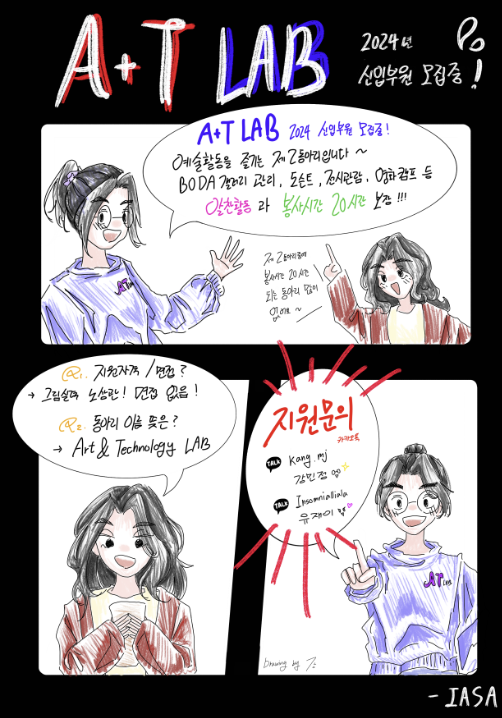 A+T LAB
2024년
신입부원 모집중!
A+T LAB 2024 신입부원 모집중!
예술활동을 즐기는 제2동아리입니다~
BODA 갤러리 관리, 도슨트, 전시관람, 영화캠프 등
알찬활동과 봉사시간 20시간 보장!!!
제2동아리중에
봉사시간 20시간
되는 동아리 많이
없어요~
Q1. 지원자격/면접?
→ 그림실력 노상관! 면접 없음!
Q2. 동아리 이름 뜻은?
→ Art & Technology LAB
지원문의
카카오톡
TALK Kang.mj
강민정
TALK Insomnialiala
유재이
AT LAB
Drawing by
- IASA